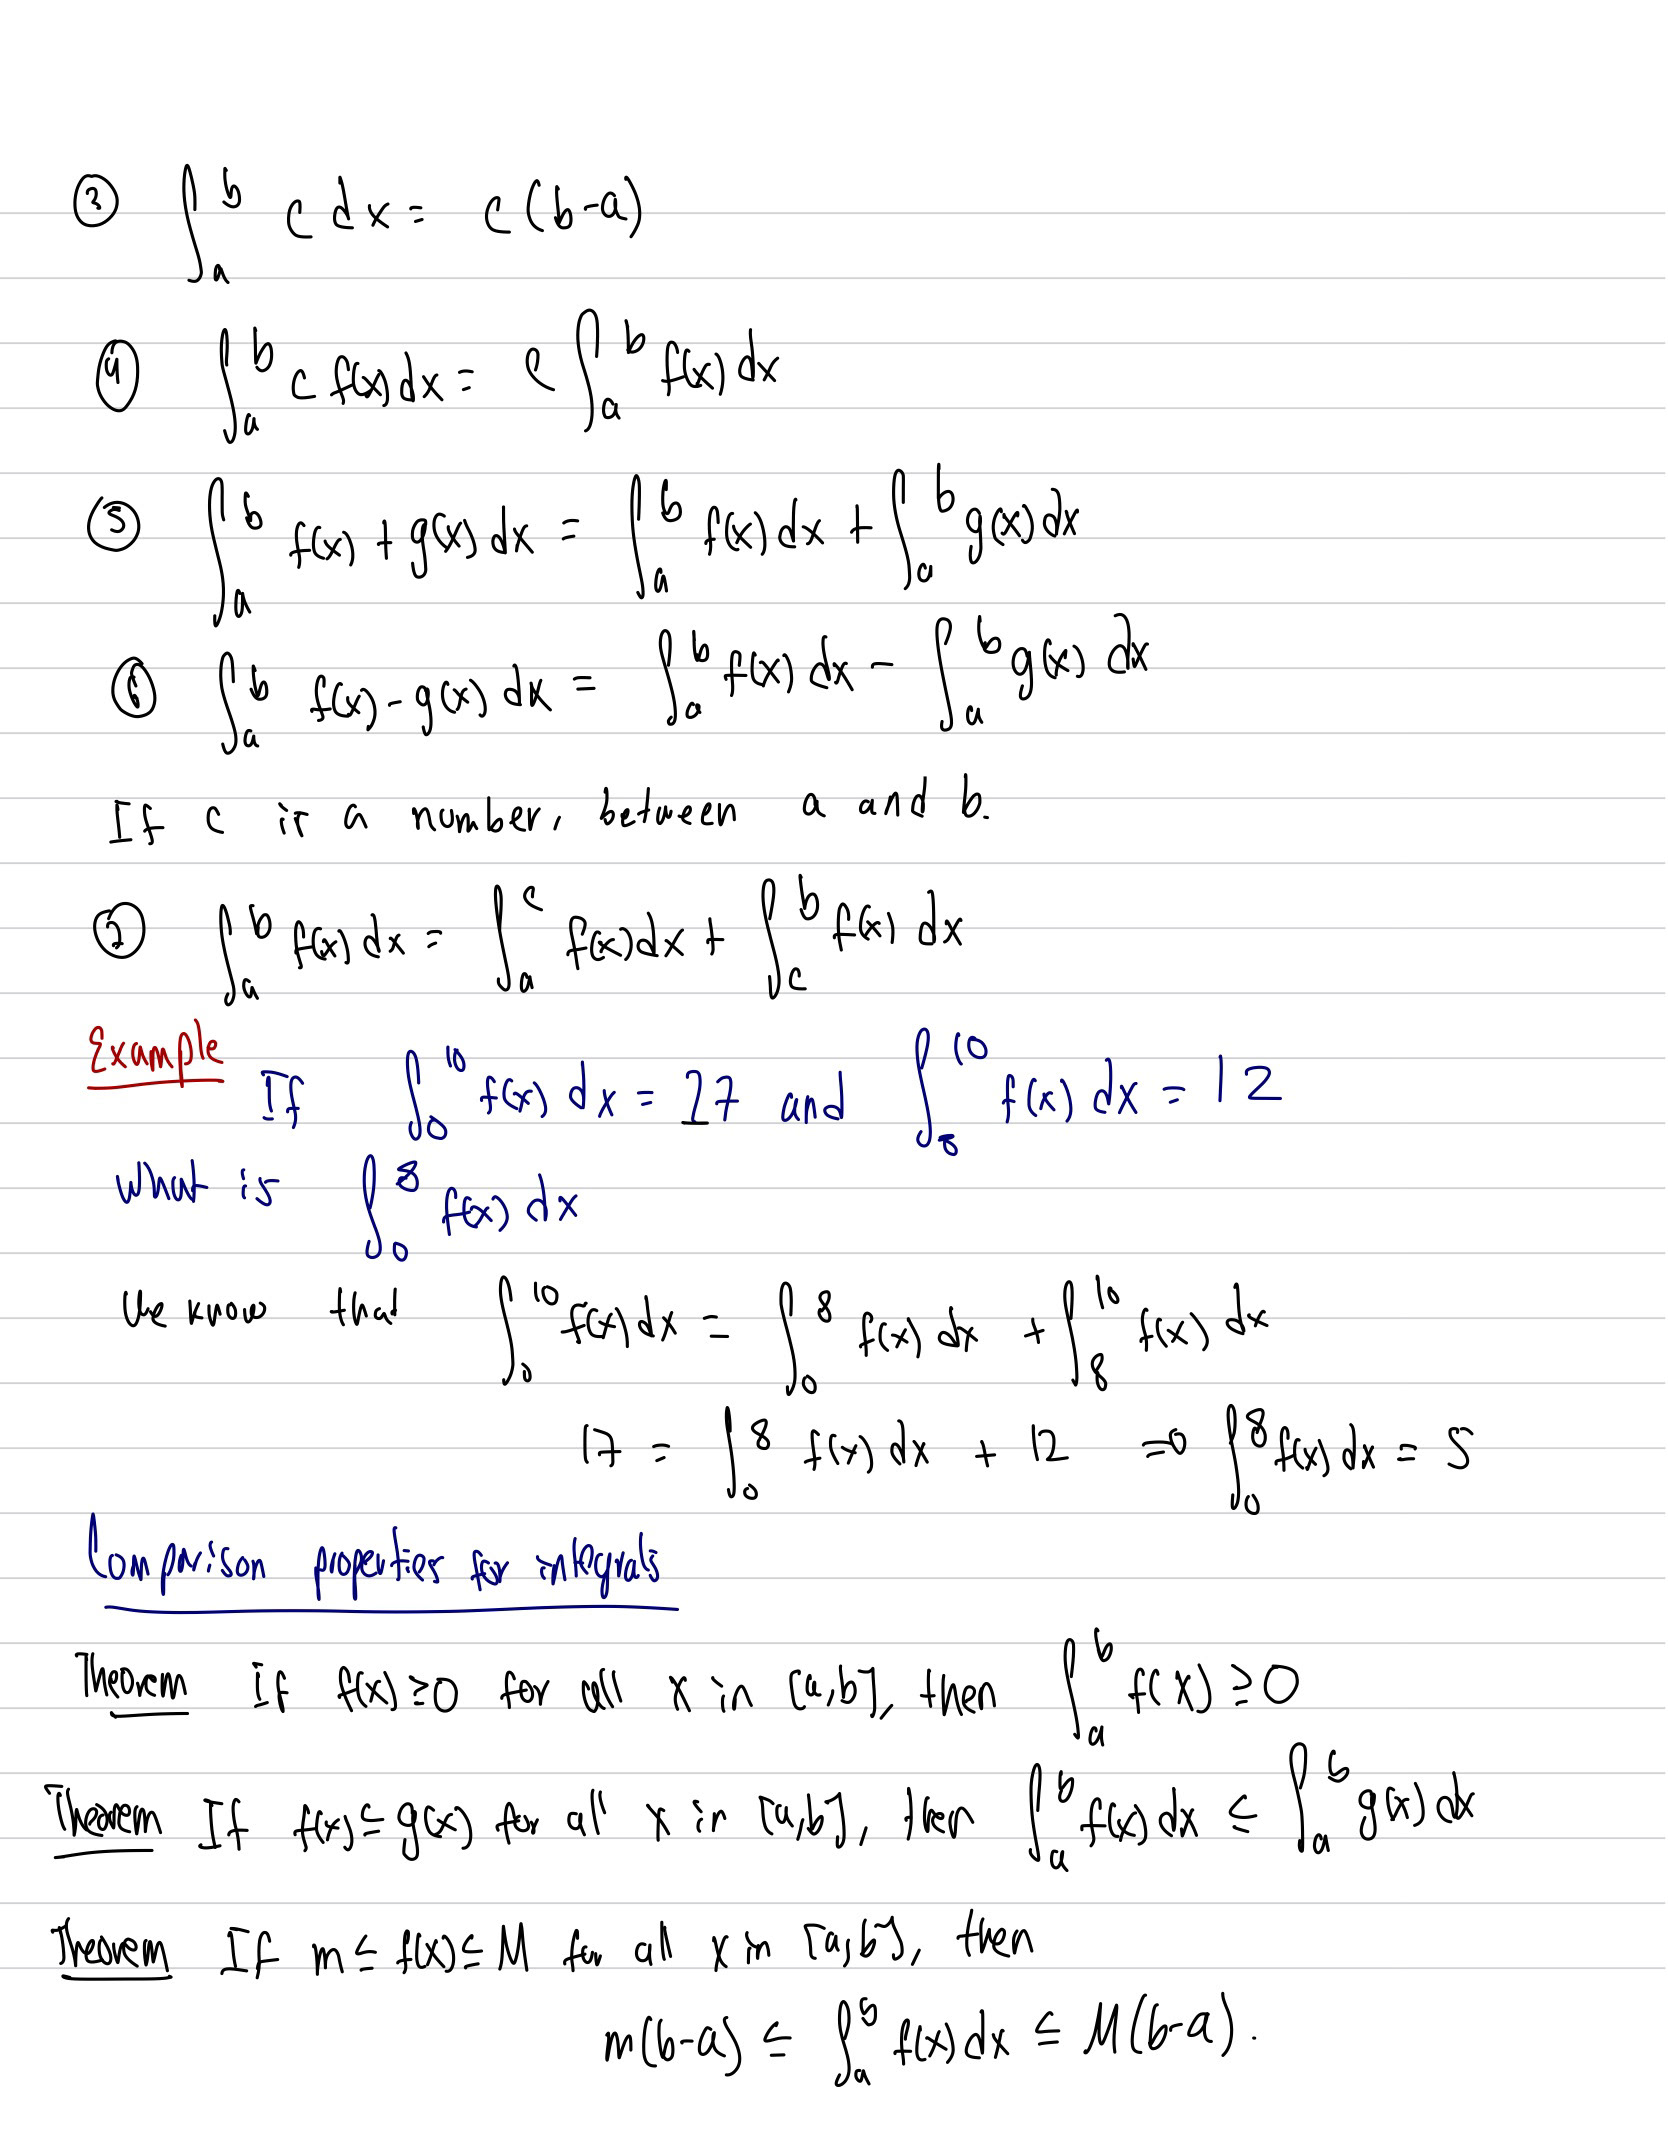 ③ ∫_a^b c dx = c(b-a)
④ ∫_a^b c f(x) dx = c ∫_a^b f(x) dx
⑤ ∫_a^b f(x) + g(x) dx = ∫_a^b f(x) dx + ∫_a^b g(x) dx
⑥ ∫_a^b f(x) - g(x) dx = ∫_a^b f(x) dx - ∫_a^b g(x) dx
If c is a number, between a and b.
⑦ ∫_a^b f(x) dx = ∫_a^c f(x) dx + ∫_c^b f(x) dx
Example If ∫_0^10 f(x) dx = 17 and ∫_8^10 f(x) dx = 12
What is ∫_0^8 f(x) dx
We know that ∫_0^10 f(x) dx = ∫_0^8 f(x) dx + ∫_8^10 f(x) dx
17 = ∫_0^8 f(x) dx + 12 ⇒ ∫_0^8 f(x) dx = 5
Comparison properties for integrals
Theorem If f(x) ≥ 0 for all x in [a,b], then ∫_a^b f(x) ≥ 0
Theorem If f(x) ≤ g(x) for all x in [a,b], then ∫_a^b f(x) dx ≤ ∫_a^b g(x) dx
Theorem If m ≤ f(x) ≤ M for all x in [a,b], then
m(b-a) ≤ ∫_a^b f(x) dx ≤ M(b-a).